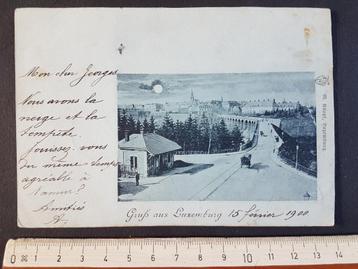 Mon cher Georges
Nous avons la
neige et la
tempête.
Jouissez vous
du même temps
agréable à
Namur?
Amitiés
Gruß aus Luxemburg 15 février 1900
1 2 3 4 5 6 7 8 9 10 11 12 13 14